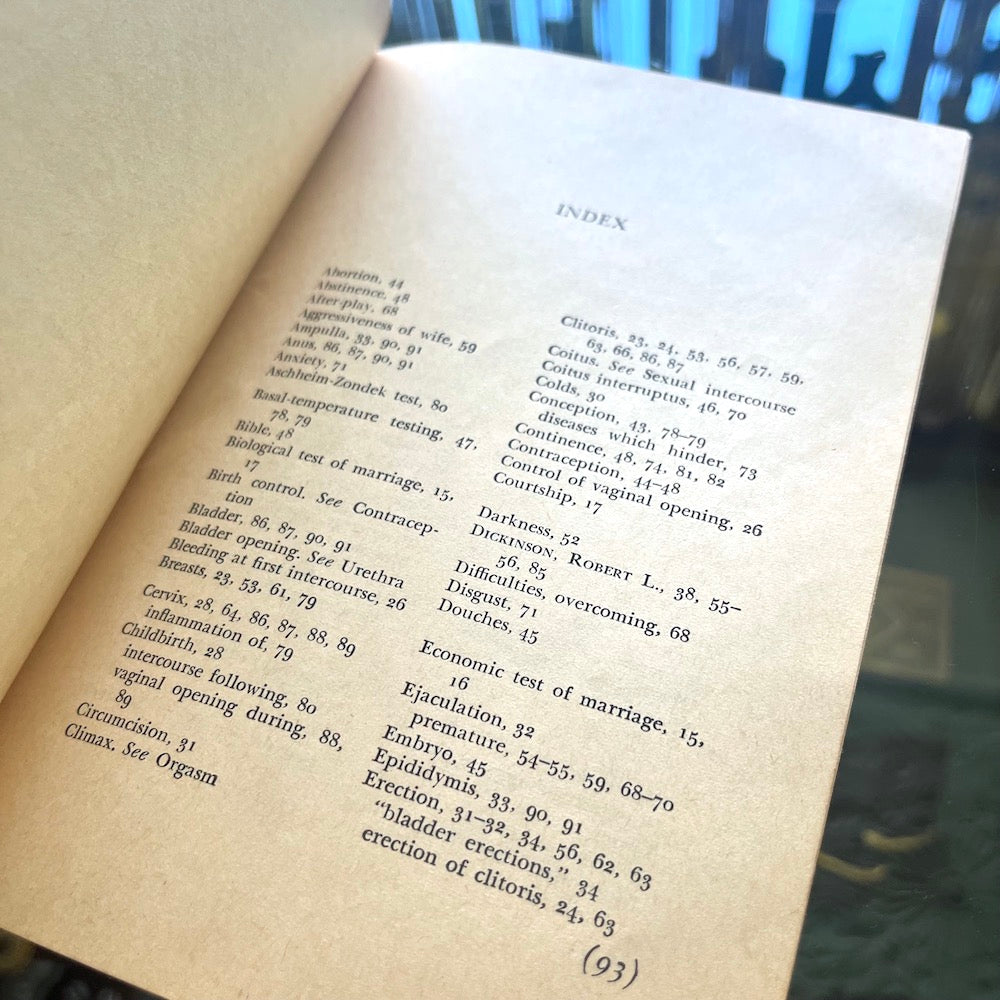 INDEX
Abortion, 44
Abstinence, 48
After-play, 68
Aggressiveness of wife, 59
Ampulla, 33, 90, 91
Anus, 86, 87, 90, 91
Anxiety, 71
Aschheim-Zondek test, 80
Basal-temperature testing, 47,
78, 79
Bible, 48
Biological test of marriage, 15,
17
Birth control. See Contracep-
tion
Bladder, 86, 87, 90, 91
Bladder opening. See Urethra
Bleeding at first intercourse, 26
Breasts, 23, 53, 61, 79
Cervix, 28, 64, 86, 87, 88, 89
inflammation of, 79
Childbirth, 28
intercourse following, 80
vaginal opening during, 88,
89
Circumcision, 31
Climax. See Orgasm
Clitoris, 23, 24, 53, 56, 57, 59,
63, 66, 86, 87
Coitus. See Sexual intercourse
Coitus interruptus, 46, 70
Colds, 30
Conception, 43, 78–79
diseases which hinder, 73
Continence, 48, 74, 81, 82
Contraception, 44–48
Control of vaginal opening, 26
Courtship, 17
Darkness, 52
DICKINSON, ROBERT L., 38, 55–
56, 85
Difficulties, overcoming, 68
Disgust, 71
Douches, 45
Economic test of marriage, 15,
16
Ejaculation, 32
premature, 54–55, 59, 68–70
Embryo, 45
Epididymis, 33, 90, 91
Erection, 31–32, 34, 56, 62, 63
“bladder erections,” 34
erection of clitoris, 24, 63
(93)